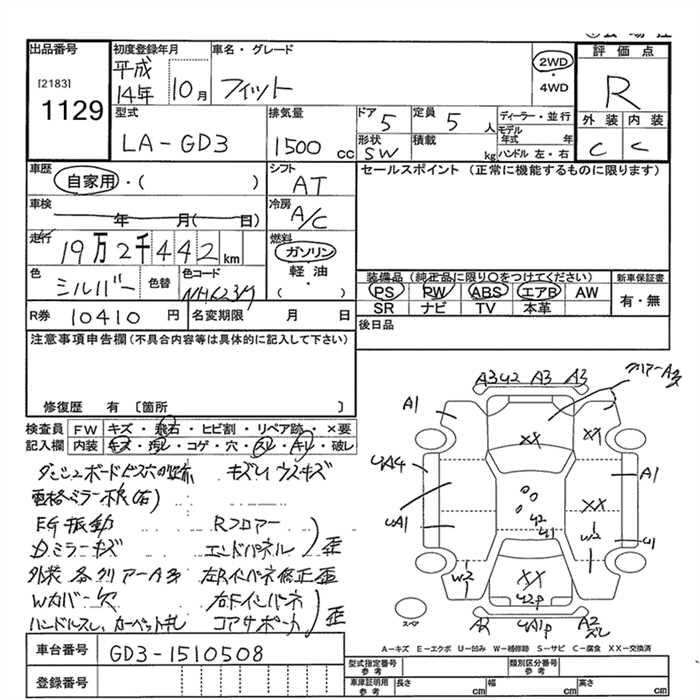 出品番号
[2183]
1129
初度登録年月
平成
14年 10月
車名・グレード
フィット
2WD
・
4WD
評価点
R
外装 内装
C C
型式
LA-GD3
排気量
1500 cc
ドア
5
定員
5 人
形状
SW
積載
kg
ディーラー・並行
モデル
年式 年
ハンドル 左・右
車歴
自家用・( )
シフト
AT
セールスポイント (正常に機能するものに限ります)
車検
年 月( 日)
冷房
A/C
走行
19万2千442 km
燃料
ガソリン
軽油
( )
色
シルバー
色替
色コード
装備品(純正品に限り○をつけてください)
PS PW ABS エアB AW
SR ナビ TV 本革
新車保証書
有・無
R券 10410 円
名変期限 月 日
後日品
注意事項申告欄(不具合内容等は具体的に記入して下さい)
修復歴 有 〔箇所 〕
検査員
記入欄
FW キズ・飛石・ヒビ割・リペア跡・×要
内装 キズ・汚レ・コゲ・穴・スレ・キレ・破レ
ダッシュボードビス穴 跡 キズ凹ウスキズ
EG振動 Rフロアー
Dミラーキズ エンドパネル 歪
外装 各クリアーA多 左Rインパネ修正歪
Wカバー欠 右Fインパネ
ハンドルスレ、カーペットキレ コアサポート 歪
クリアーA多
A3 U2 A3 A3
A1
XX XX
UA4
A1
UA1
XX
U2
U1
U1
W2 W2
XX
U2P
A2 UA1P A2
ズレ
スペア
A-キズ E-エクボ U-凹み W-補修跡 S-サビ C-腐食 XX-交換済
車台番号
GD3-1510508
登録番号
型式指定番号
参考
類別区分番号
参考
車庫証明用
参考
長さ cm 幅 cm 高さ cm